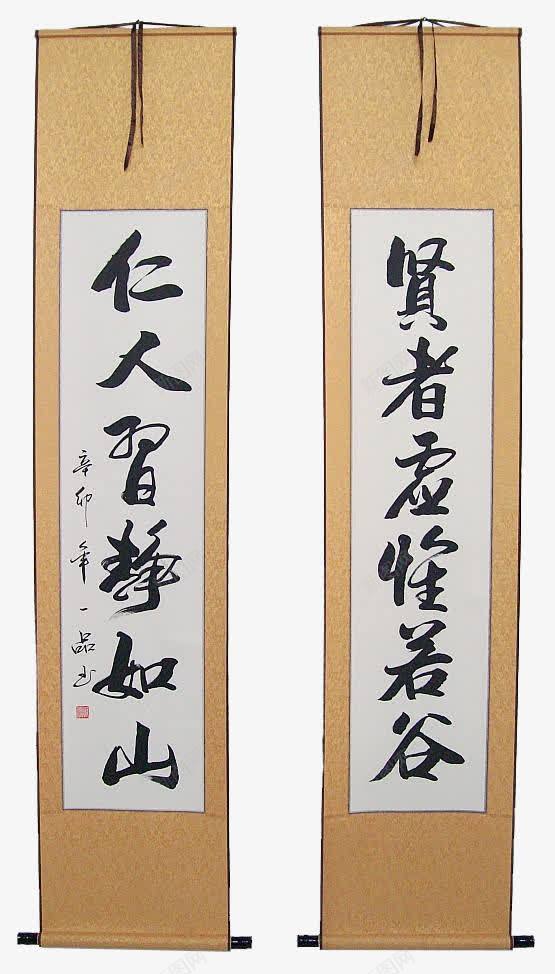 賢者虛懷若谷
仁人習靜如山
辛卯年一品书